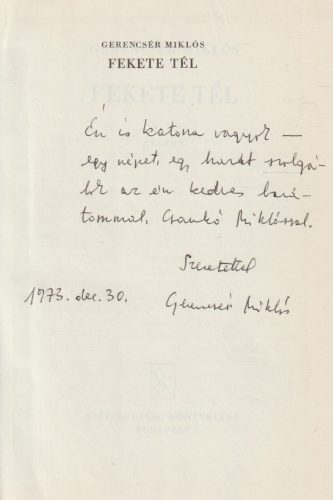 GERENCSÉR MIKLÓS
FEKETE TÉL
Én is katona vagyok —
egy népet, egy hazát szolgá-
lok az én kedves bará-
tommal, Csankó Miklóssal.
Szeretettel
1973. dec. 30.
Gerencsér Miklós